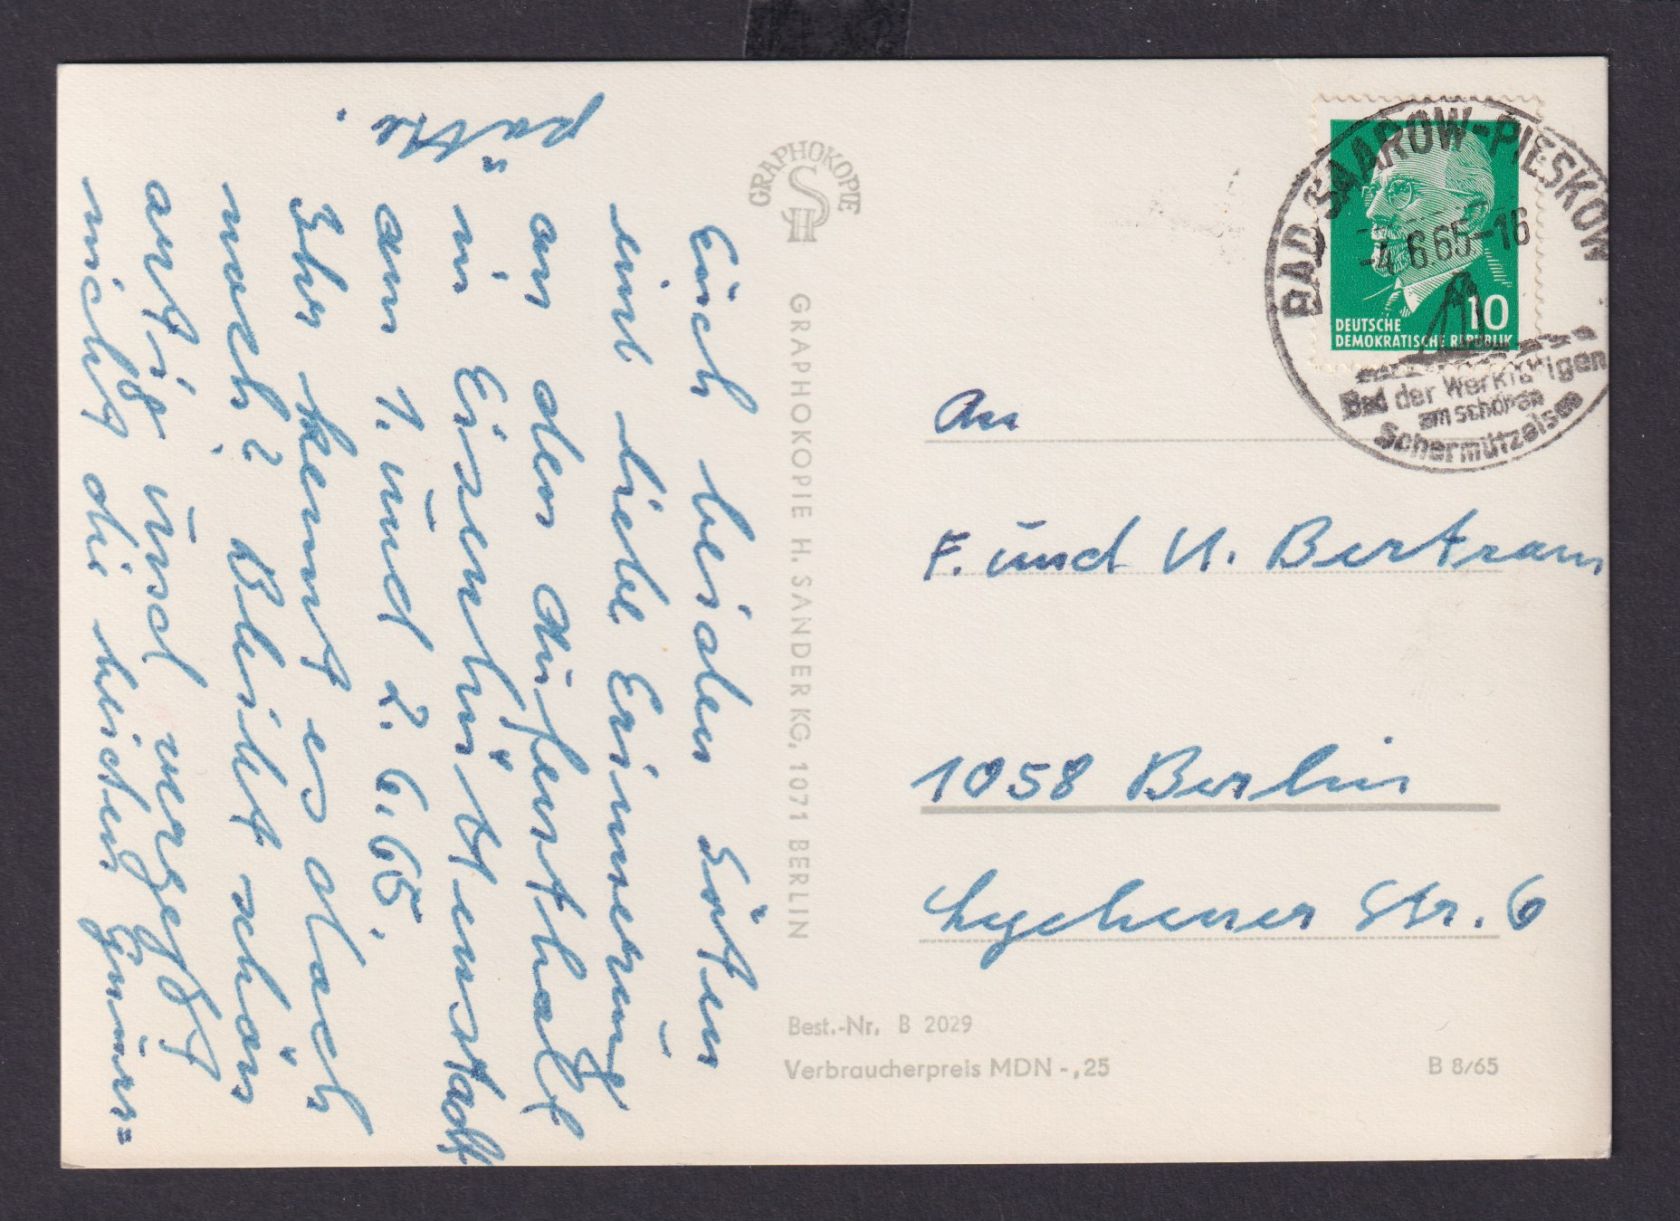 Euch beiden Guten
eine liebe Erinnerung
an den Aufenthalt
in Eisenhüttenstadt
am 1. und 2. 6. 65.
Ihr kennt es doch
noch? Bleibt schön
artig und vergeßt
nicht die beiden
pätke.
GRAPHOKOPIE
SH
GRAPHOKOPIE H. SANDER KG, 1071 BERLIN
BAD SAAROW-PIESKOW
-4.6.65-16
Bad der Werktätigen
am schönen
Scharmützelsee
10
DEUTSCHE
DEMOKRATISCHE REPUBLIK
An
F. und U. Bertram
1058 Berlin
Lychener Str. 6
Best.-Nr. B 2029
Verbraucherpreis MDN -,25
B 8/65